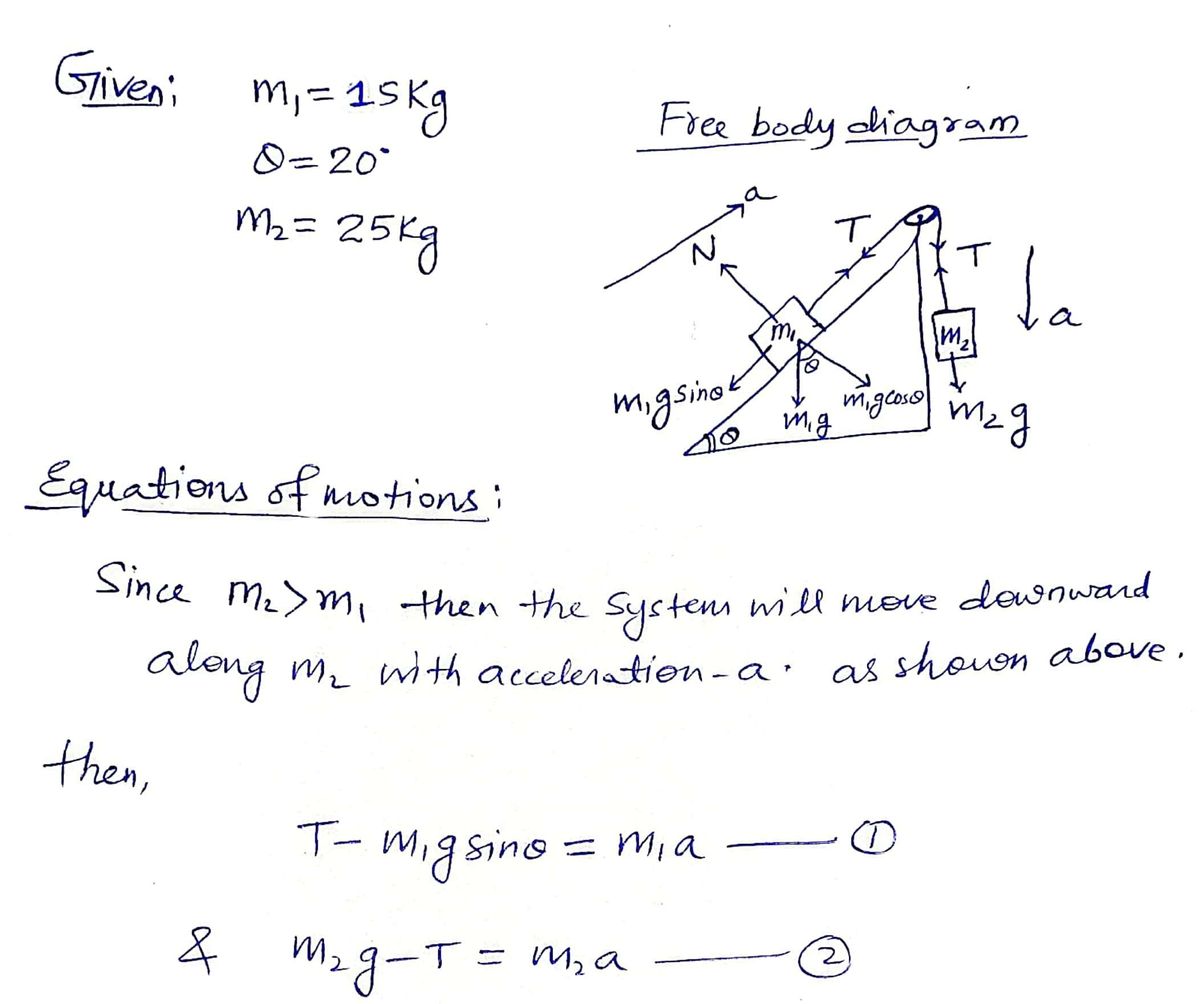 Given: m₁ = 15Kg
θ = 20°
m₂ = 25Kg
Free body diagram
a
N
T
T
a
m₁
m₂
θ
m₁gsinθ
m₁g
m₁gcosθ
m₂g
θ
Equations of motions :
Since m₂>m₁ then the system will move downward
along m₂ with acceleration-a. as shown above.
then,
T- m₁gsinθ = m₁a —— ①
& m₂g-T = m₂a —— ②